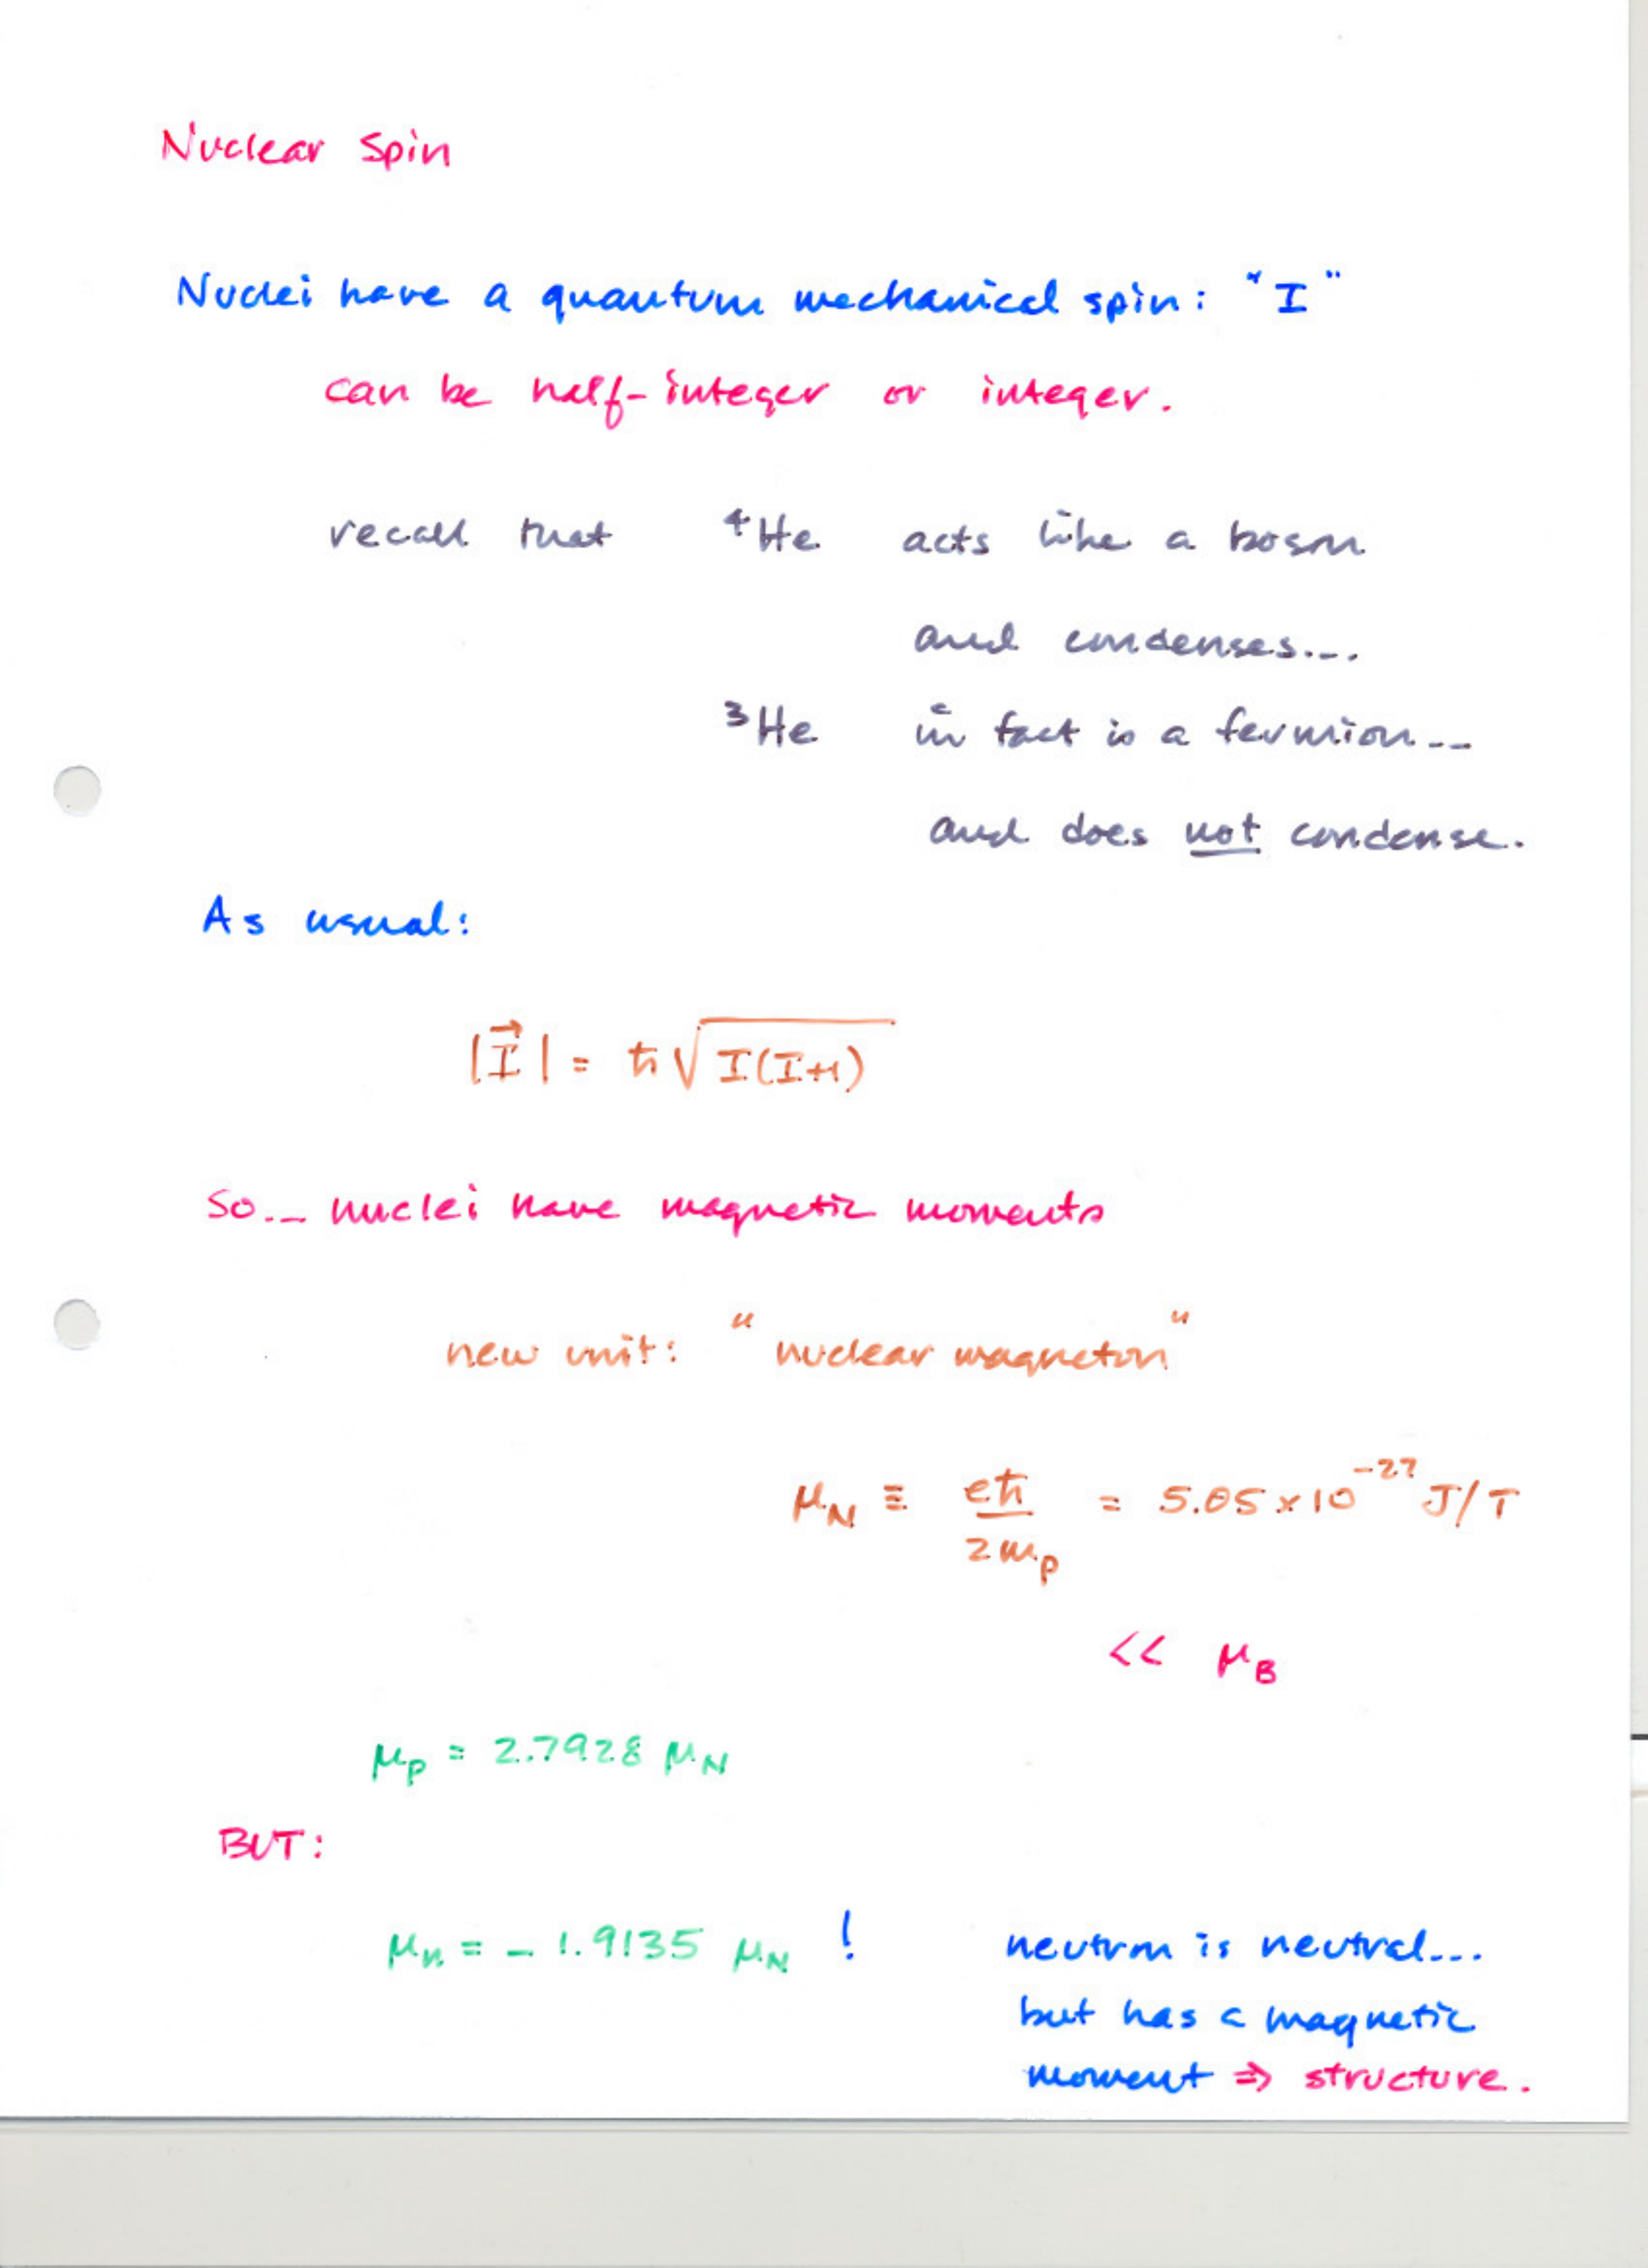 Nuclear Spin
Nuclei have a quantum mechanical spin: "I"
can be half-integer or integer.
recall that ⁴He acts like a boson
and condenses...
³He in fact is a fermion...
and does not condense.
As usual:
|I⃗| = ħ√I(I+1)
So... nuclei have magnetic moments
new unit: "nuclear magneton"
μ_N ≡ eħ/2m_p = 5.05 × 10⁻²⁷ J/T
<< μ_B
μ_p = 2.7928 μ_N
BUT:
μ_n = - 1.9135 μ_N !
neutron is neutral...
but has a magnetic
moment ⇒ structure.